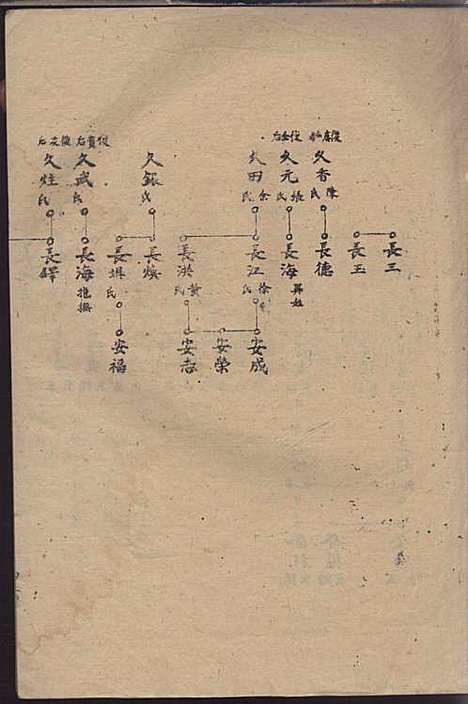 長三
長玉
久香 陳氏
長德
久元 張氏
長海
久田 余氏
長江 徐氏
安成
安榮
長洪 黃氏
安志
久銀 氏
長煥
長 氏
安福
久武 氏
長海 抱撫
久 氏
長鐸